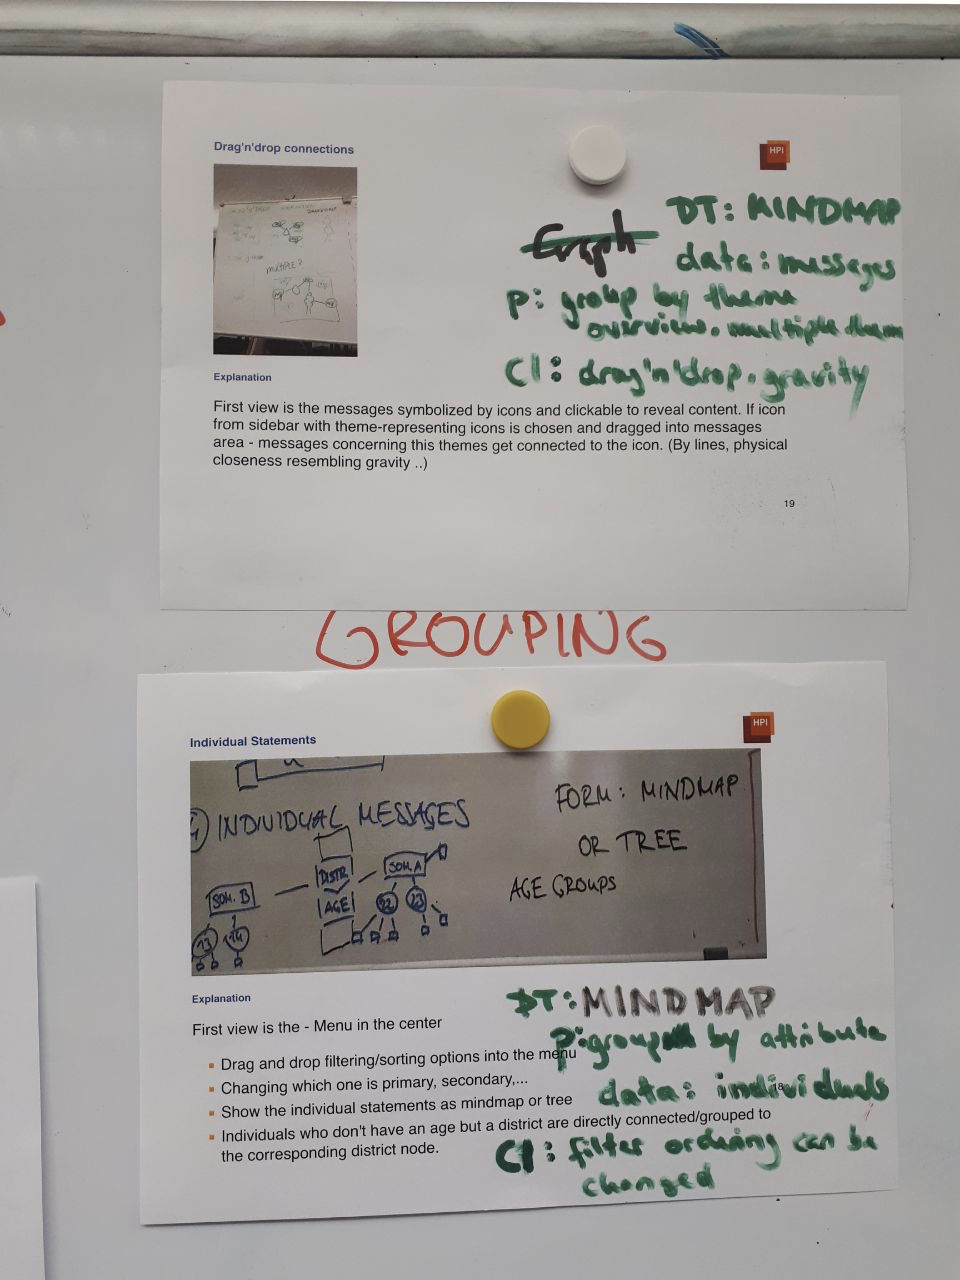 Drag'n'drop connections
HPI
MULTIPLE?
Graph
DT: MINDMAP
data: messages
P: group by theme
overview. multiple them
CI: drag'n'drop. gravity
Explanation
First view is the messages symbolized by icons and clickable to reveal content. If icon
from sidebar with theme-representing icons is chosen and dragged into messages
area - messages concerning this themes get connected to the icon. (By lines, physical
closeness resembling gravity ..)
19
GROUPING
HPI
Individual Statements
INDIVIDUAL MESSAGES
FORM: MINDMAP
OR TREE
AGE GROUPS
DISTR
AGE
SOM. A
22 23
SOM. B
13 14
Explanation
First view is the - Menu in the center
Drag and drop filtering/sorting options into the menu
Changing which one is primary, secondary,...
Show the individual statements as mindmap or tree
Individuals who don't have an age but a district are directly connected/grouped to
the corresponding district node.
18
DT: MINDMAP
P: group by attribute
data: individuals
CI: filter ordering can be
changed